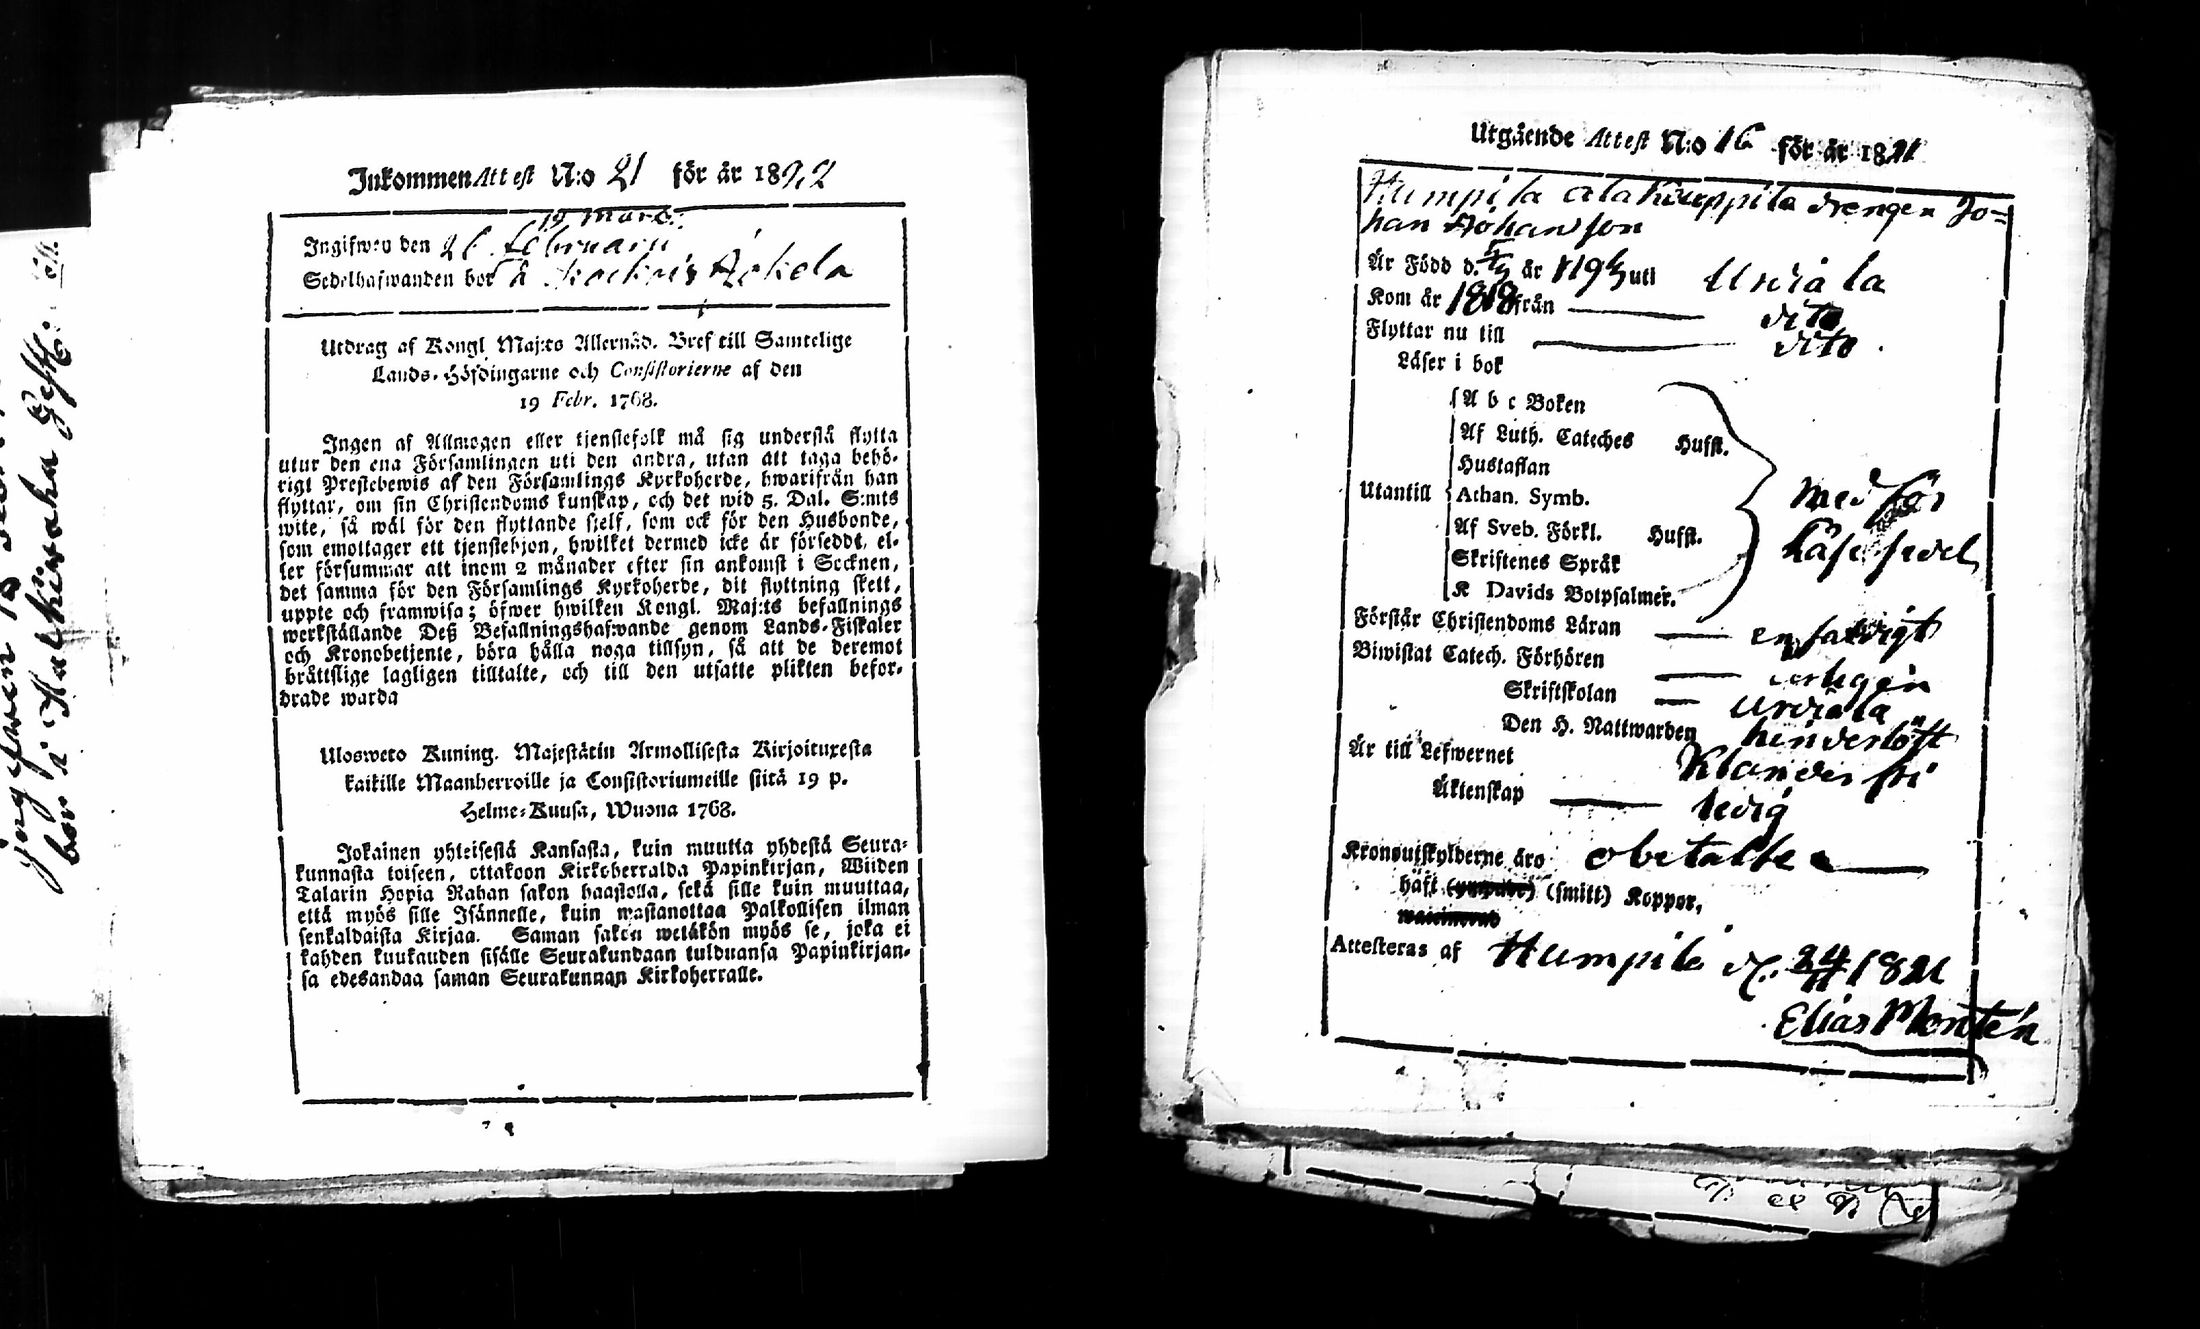 bor i Matkuwaha Gesth.
Inkommen Attest N:o 21 för år 1822
19 Mars.
Ingifwen den 26 Februarii
Sedelhafwanden bor å Äckelä
Utdrag af Kongl. Maj:ts Allernåd. Bref till Samtelige
Lands-Höfdingarne och Consistorierne af den
19 Febr. 1768.
Ingen af Allmogen eller tjenstefolk må sig understå flytta
utur den ena Församlingen uti den andra, utan att taga behö-
rigt Prestebewis af den Församlings Kyrkoherde, hwarifrån han
flyttar, om sin Christendoms kunskap, och det wid 5. Dal. S:mts
wite, så wäl för den flyttande sjelf, som ock för den Husbonde,
som emottager ett tjenstehjon, hwilket dermed icke är förseddt, el-
ler försummar att inom 2 månader efter sin ankomst i Socknen,
det samma för den Församlings Kyrkoherde, dit flyttning skett,
uppte och framwisa; öfwer hwilken Kongl. Maj:ts befallnings
werkställande Deß Befallningshafwande genom Lands-Fiskaler
och Kronobetjente, böra hålla noga tillsyn, så att de deremot
bråttslige lagligen tilltalte, och till den utsatte plikten befor-
drade warda
Ulosweto Kuning. Majestätin Armollisesta Kirjoituxesta
kaikille Maanherroille ja Consistoriumeille siitä 19 p.
Helme-Kuusa, Wuona 1768.
Jokainen yhteisestä Kansasta, kuin muutta yhdestä Seura-
kunnasta toiseen, ottakoon Kirkoherralda Papinkirjan, Wiiden
Talarin Hopia Rahan sakon haastolla, sekä sille kuin muuttaa,
että myös sille Isännelle, kuin wastanottaa Palkollisen ilman
senkaldaista Kirjaa. Saman sakon wetäkön myös se, joka ei
kahden kuukauden sisälle Seurakundaan tulduansa Papinkirjan-
sa edesandaa saman Seurakunnan Kirkoherralle.
Utgående Attest N:o 16 för år 1821
Humpila ala Kauppila drengen Jo=
han Johansson
Är Född d. år uti Urdiala
Kom år 1818 från dito
Flyttar nu till dito
Läser i bok
A b c Boken
Af Luth. Cateches Husst.
Hustaflan
Utantill Athan. Symb. med för
Af Sveb. Förkl. Husst. Läse sedel
Skriftenes Språk
K Davids Botpsalmer.
Förstår Christendoms Läran enfaldigt
Biwistat Catech. Förhören
Skriftskolan Urdiala
Den H. Nattwarden hinderlöst
Är till Lefwernet Klanderfri
Äktenskap ledig
Kronoutskylderne äro obetalte
haft (smitt) Koppor,
Attesteras af Humpila d. 1821
Elias Montén